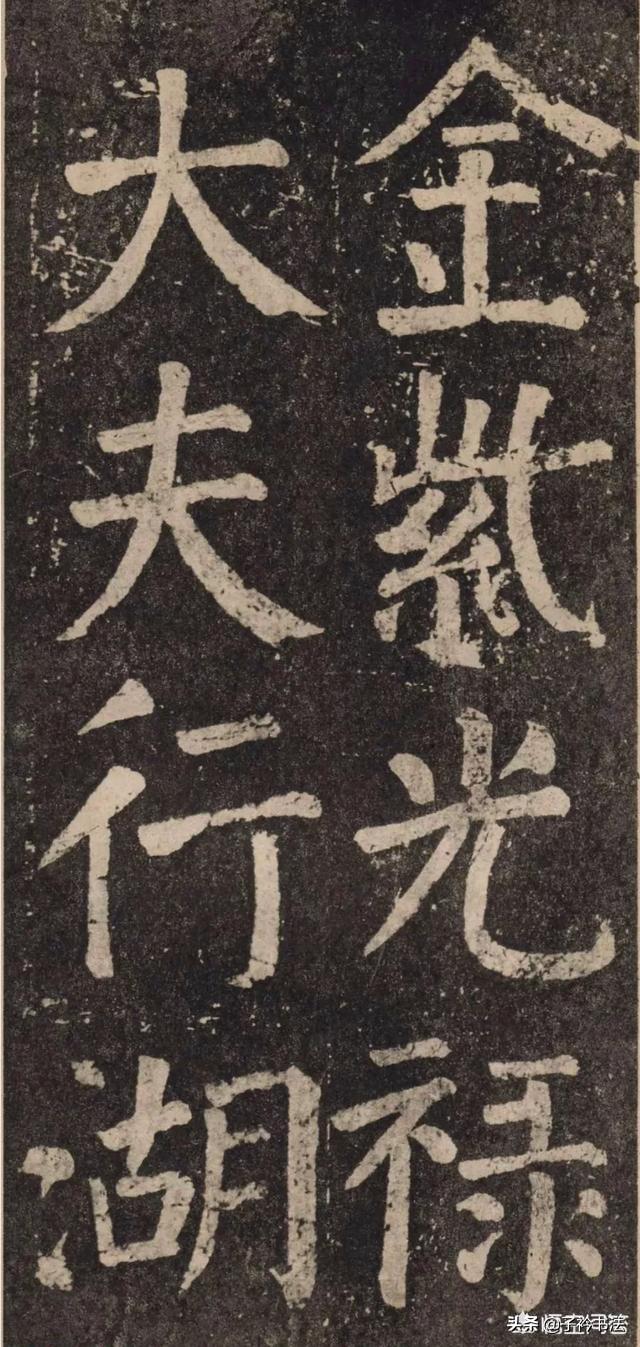 金紫光禄
大夫行湖
头条@子冷书法